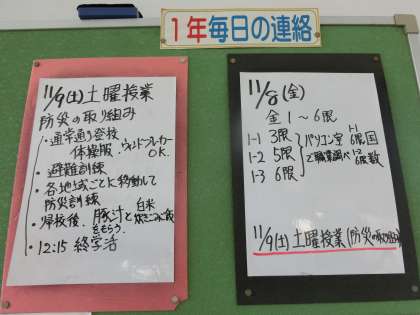 1年毎日の連絡
11/9(土)土曜授業
防災の取り組み
・通常通り登校
体操服・ウィンドブレーカー
OK.
・避難訓練
・各地域ごとに移動して
防災訓練
・帰校後、豚汁と白米
炊きこみご飯
をもらう.
・12:15 終学活
11/8(金)
金1~6限
1-1 3限
1-2 5限
1-3 6限
パソコン室
で職業調べ
1-1
6限国
1-2
6限数
11/9(土)土曜授業(防災の取り組み)